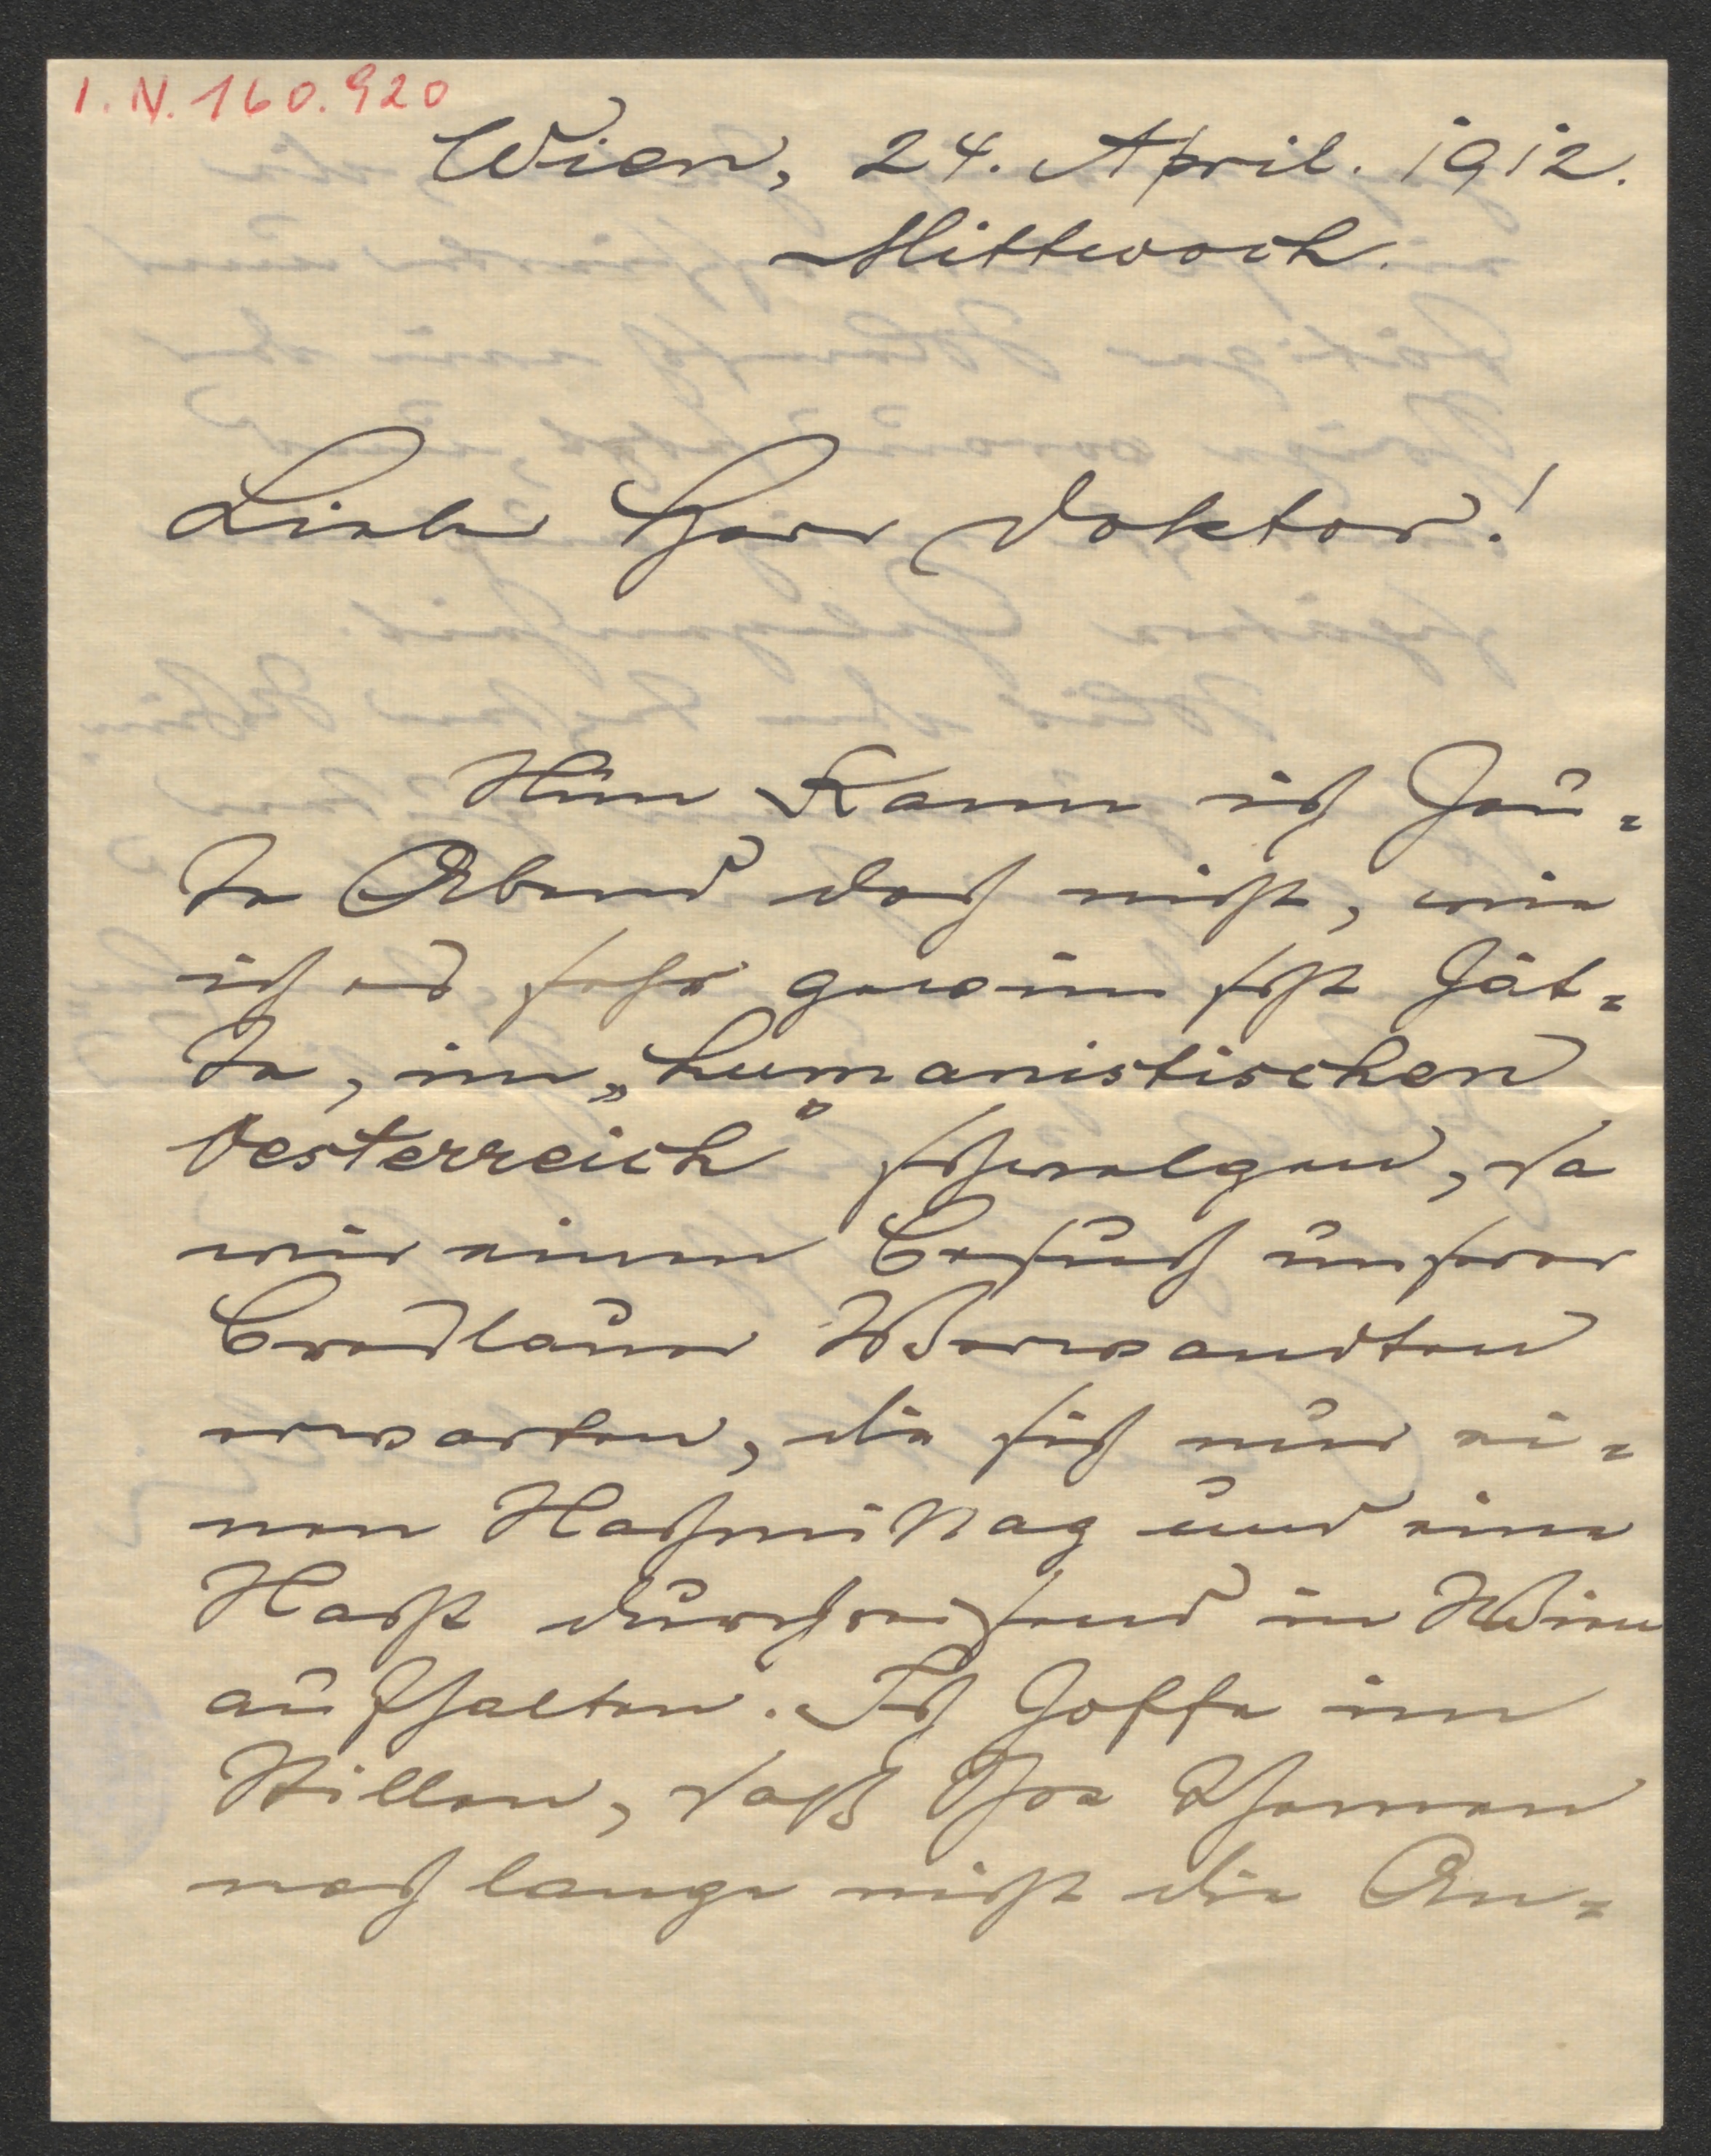 I.N. 160.920
Wien, 24. April. 1912.
Mittwoch.
Lieber Herr Doktor!
Nun kann ich heu=
te Abend doch nicht, wie
ich es sehr gewünscht hät=
te, im „humanistischen
Oesterreich" schwelgen, da
wir einen Besuch unserer
Breslauer Verwandten
erwarten, die sich nur ei=
nen Nachmittag und eine
Nacht durchreisend in Wien
aufhalten. Ich hoffe im
Stillen, daß Ihre Themen
noch lange nicht die An=